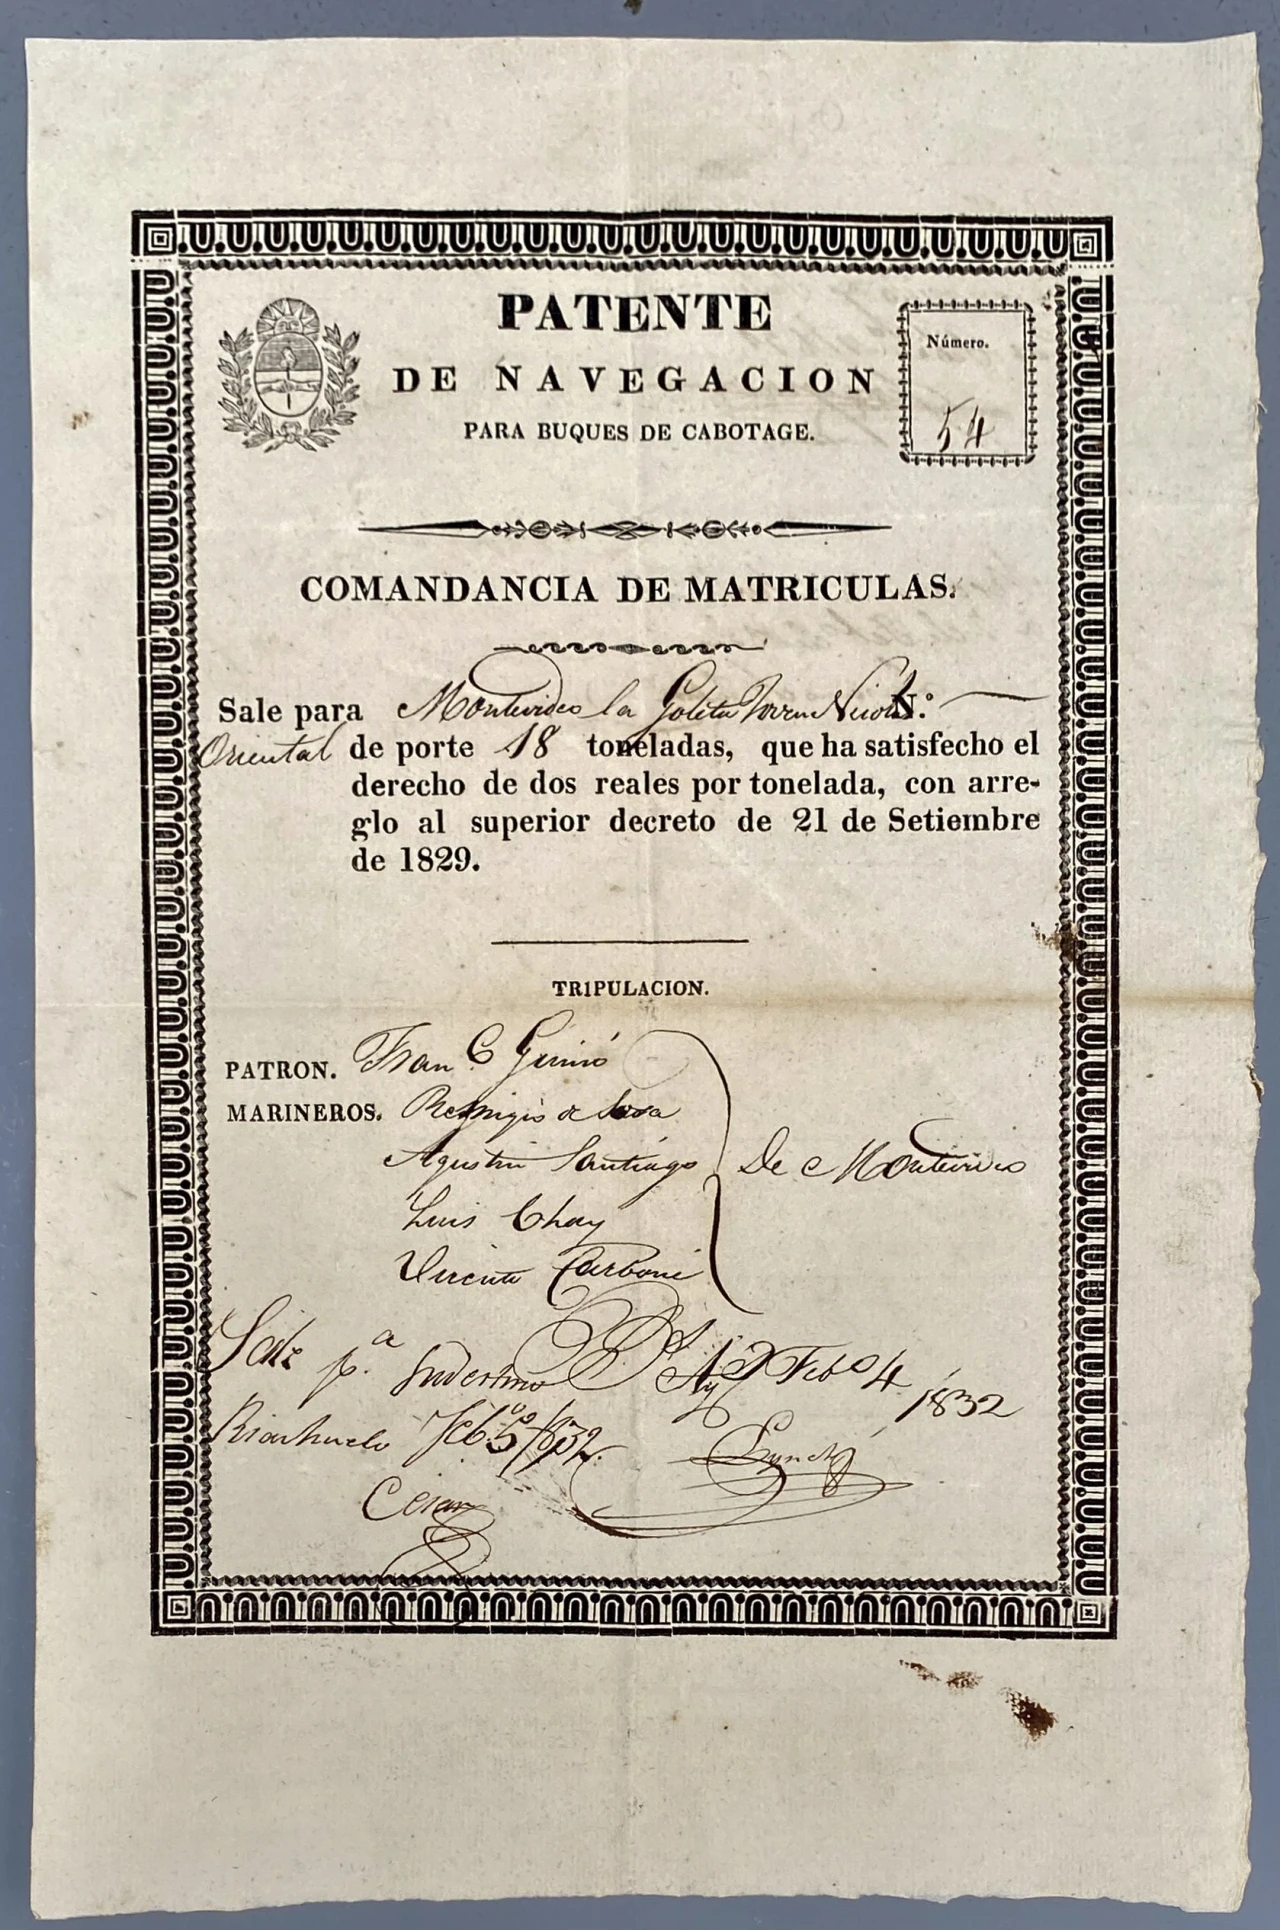 PATENTE
DE NAVEGACION
PARA BUQUES DE CABOTAGE.
Número.
54
COMANDANCIA DE MATRICULAS.
Sale para Montevideo la Goleta Joven N.º
Oriental de porte 18 toneladas, que ha satisfecho el
derecho de dos reales por tonelada, con arre-
glo al superior decreto de 21 de Setiembre
de 1829.
TR1PULACION.
PATRON. Fran.co
MARINEROS. Remigio de Sosa
Agustin Santiago De Montevideo
Luis Chay
Vicente Carboni
B.s Ay.s Feb.o 4 1832
Sale p.a su destino
Riachuelo Feb.o 5/832.
Lynch
Cesar